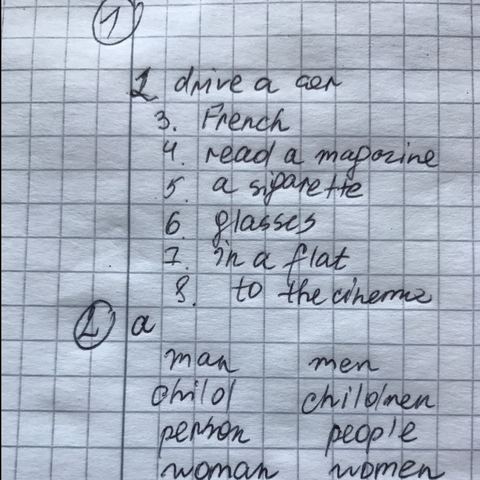 1
2 drive a car
3. French
4. read a magazine
5. a sigarette
6. glasses
7. in a flat
8. to the cinema
2 a
man men
child children
person people
woman women